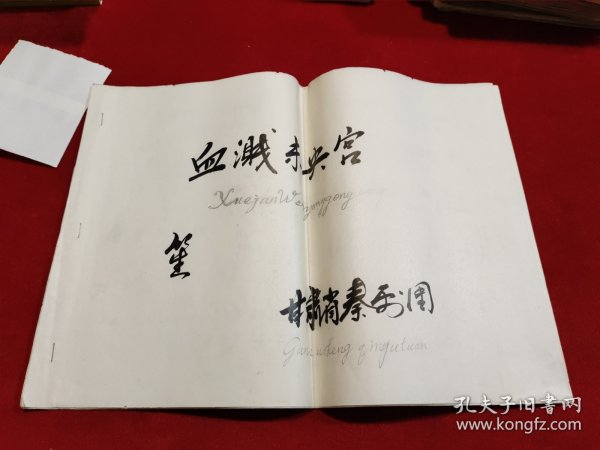 血溅未央宫
XuejianWeiyanggong
笙
甘肃省秦剧团
Gansusheng qinjutuan
孔夫子旧书网
www.kongfz.com